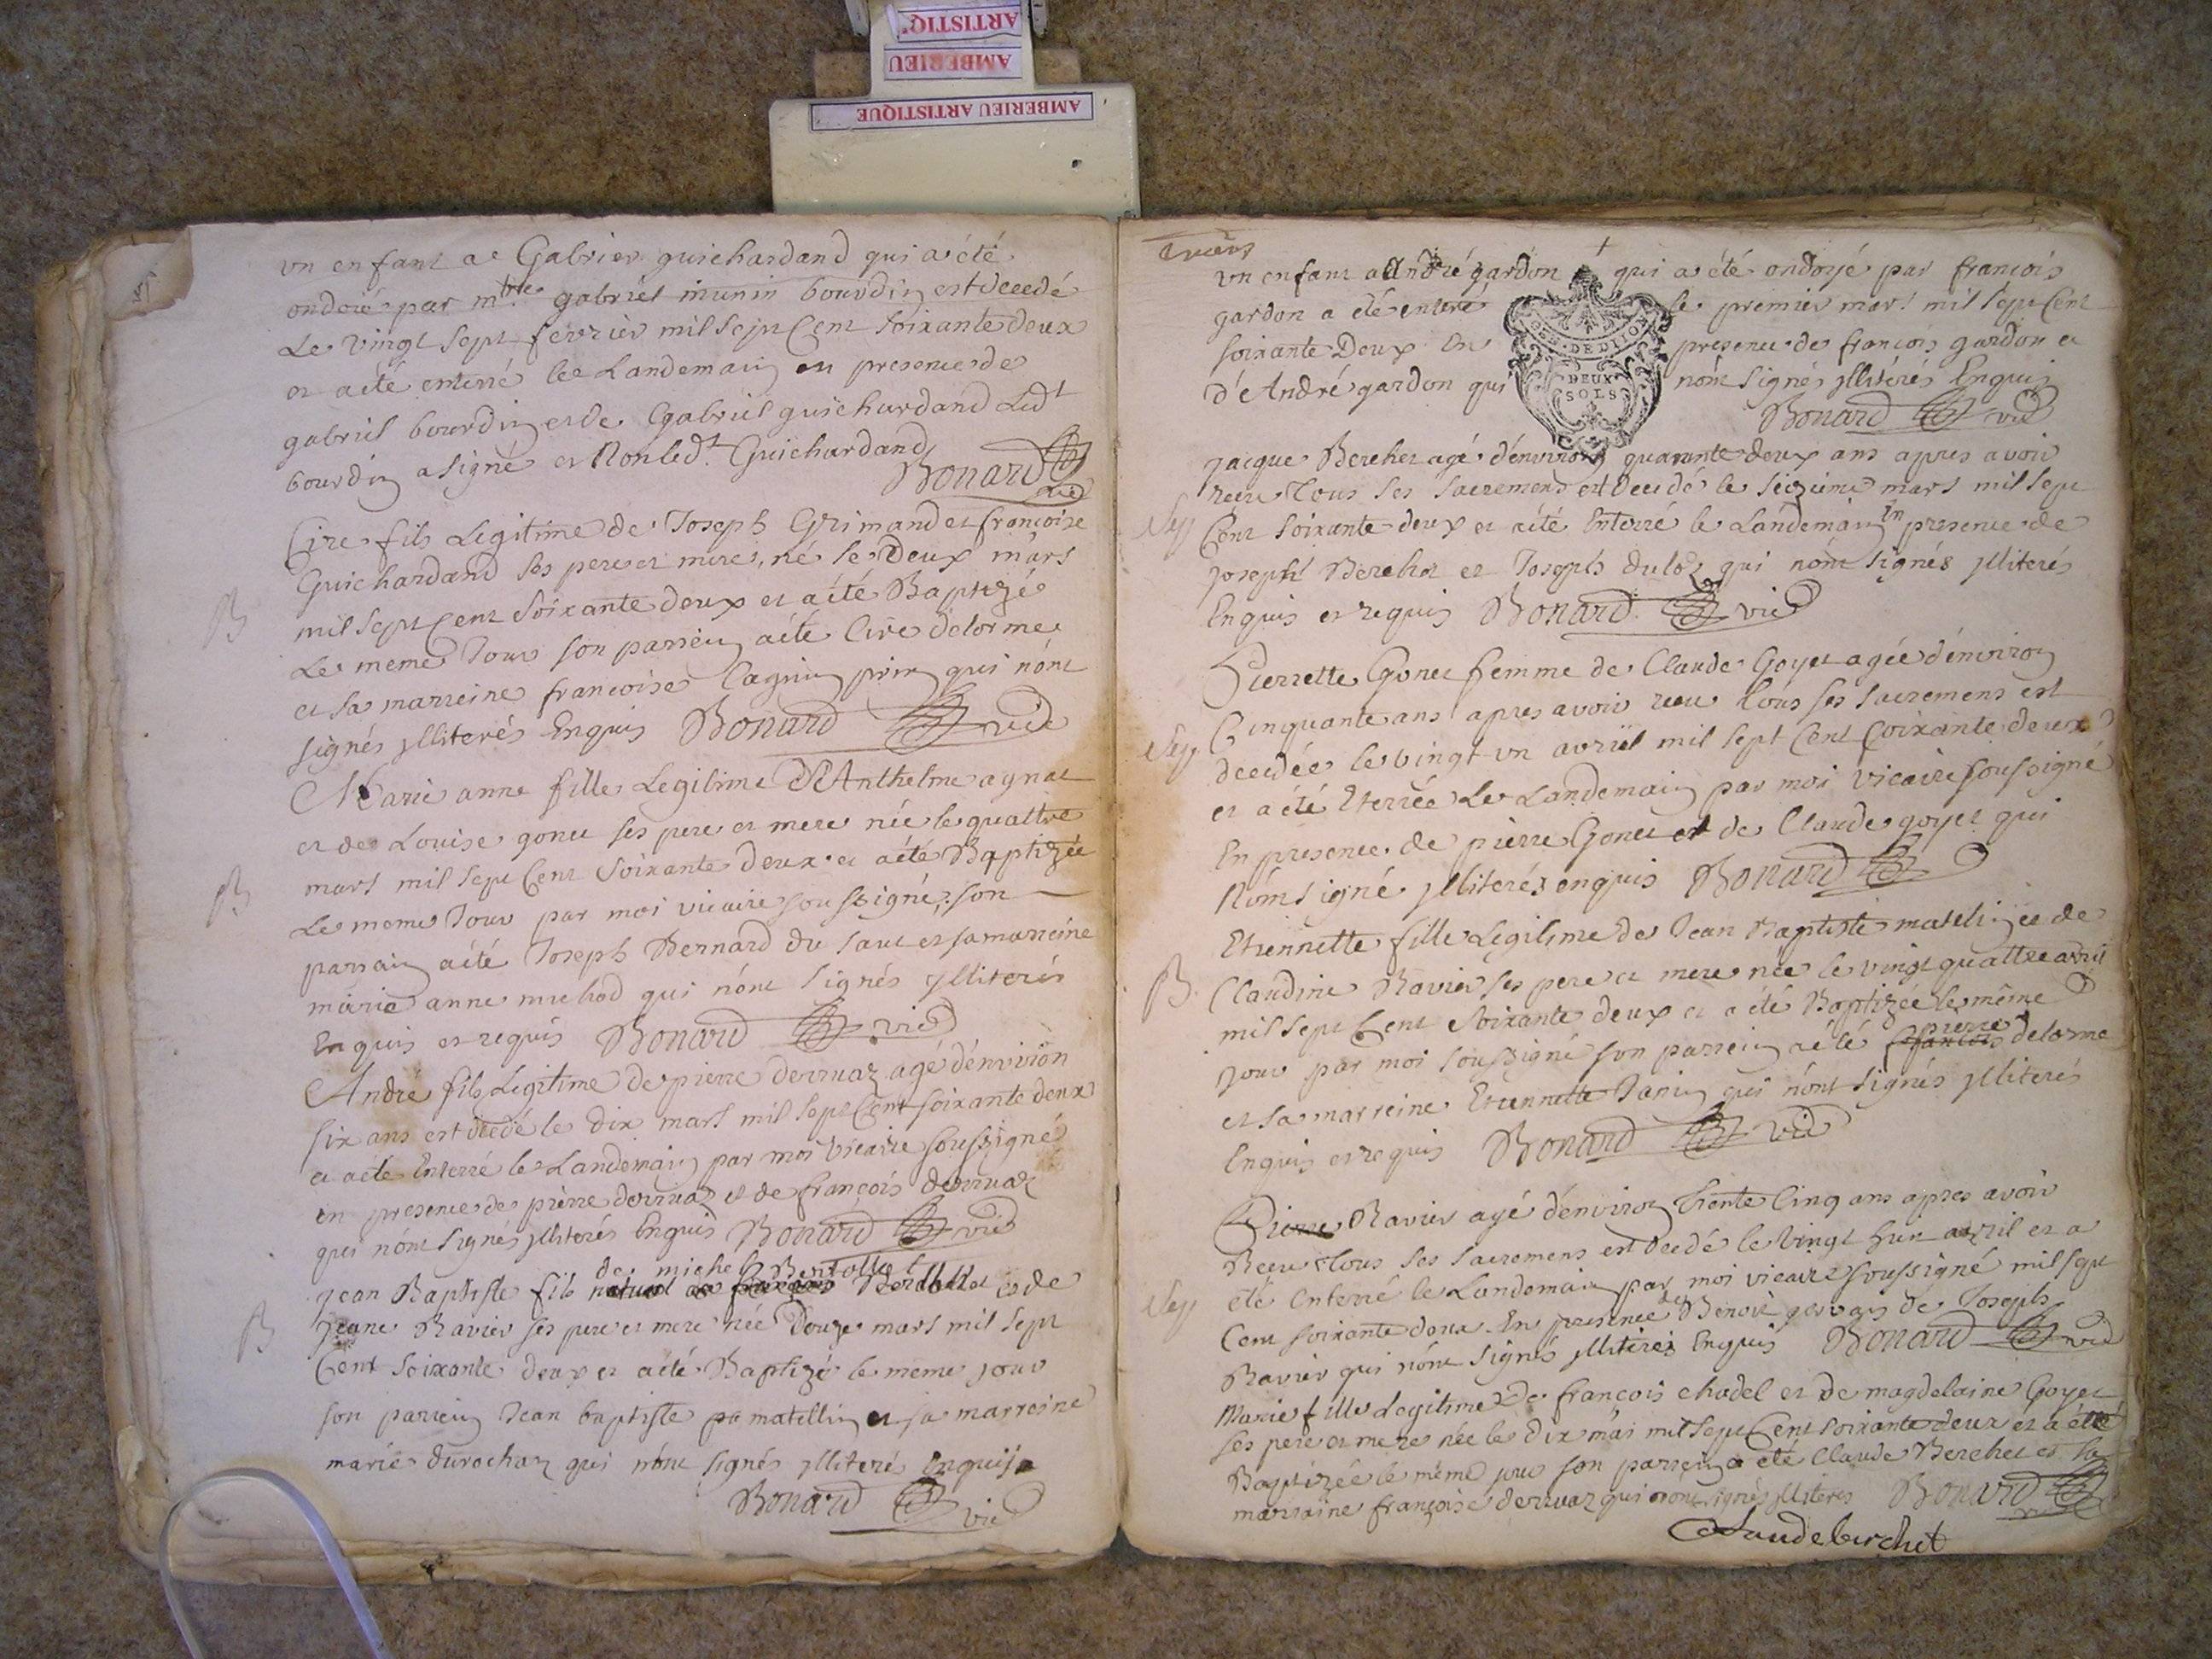 ARTISTIQ'
AMBERIEU
AMBERIEU ARTISTIQUE
un enfant a Gabriel guichardand qui a été
ondoié par mtre gabriel munin bourdin est decedé
Le vingt sept fevrier mil sept Cent soixante deux
et a été enterré le Landemain en presence de
gabriel bourdin et de Gabriel guichardand Ledt
bourdin a signé et Non ledt Guichardand
Bonard vic
Cire fils Legitime de Joseph Grimand et françoise
Guichardand ses pere et mere, né le Deux mars
B
mil sept Cent soixante deux et a été Baptizé
Le meme Jour son parrein a été Cire delorme
et sa marreine francoise qui n'ont
signés illiterés Enquis Bonard vic
Marie anne fille Legitime D'Anthelme agnat
et de Louise gonet ses pere et mere née le quattre
mars mil sept Cent soixante deux et a été Baptizée
B
Le meme Jour par moi vicaire soussigné, son
parrain a été Joseph Bernard du saut et sa marreine
marie anne qui n'ont signés ylliterés
Enquis et requis Bonard vic
André fils Legitime de pierre derruaz agé d'environ
six ans est decedé le dix mars mil sept Cent soixante deux
et a été Enterré le Landemain par moi vicaire soussigné
en presence de pierre derruaz et de françois derruaz
qui n'ont signés illiterés Enquis Bonard vic
de michel Bertollet
Jean Baptiste fils naturel de françois Bertollet et de
B
Jeane Ravier ses pere et mere née Douze mars mil sept
Cent soixante deux et a été Baptizé le meme jour
son parrein Jean baptiste matellin et sa marreine
marie durochaz qui n'ont signés illiteré Enquis
Bonard vic
un enfant a André gardon qui a été ondoyé par françois
gardon a été enterré le premier mars mil sept Cent
soixante Deux En presence de françois gardon et
d'André gardon qui n'ont signés illiterés Enquis
DE DIJON
DEUX
SOLS
Bonard vic
Jacque Berchet agé d'environ quarante deux ans apres avoir
receu tous ses sacremens est decedé le seizieme mars mil sept
Sep
Cent soixante deux et a été Enterré le Landemain En presence de
Joseph Berchet et Joseph duloz qui n'ont signés illiterés
Enquis et requis Bonard vic
Pierrette Gonet femme de Claude Goyet agée d'environ
Cinquante ans apres avoir receu tous ses sacremens est
Sep
decedée le vingt un avril mil sept Cent soixante deux
et a été Eterrée Le Landemain par moi vicaire soussigné
En presence de pierre Gonet et de Claude goyet qui
N'ont signé illiterés enquis Bonard
Etiennette fille Legitime de Jean Baptiste matelin et de
B
Claudine Ravier ses pere et mere née le vingt quattre avril
mil sept Cent soixante deux et a été Baptizée le même
jour par moi soussigné son parrein a été françois pierre delorme
et sa marreine Etiennette Janin qui n'ont signés illiterés
Enquis et requis Bonard vic
Pierre Ravier agé d'environ Trente Cinq ans apres avoir
Receu tous ses sacremens est decedé le vingt huit avril et a
Sep
été Enterré le Landemain par moi vicaire soussigné mil sept
Cent soixante deux En presence de Benoit gervais de Joseph
Ravier qui n'ont signés illiterés Enquis Bonard vic
Marie fille Legitime de françois chadel et de magdelaine Goyet
ses pere et mere née le dix mai mil sept Cent soixante deux et a été
Baptizée le même jour son parrein a été Claude Berchet et sa
marraine françoise derruaz qui n'ont signés illiteres Bonard
Claude berchet